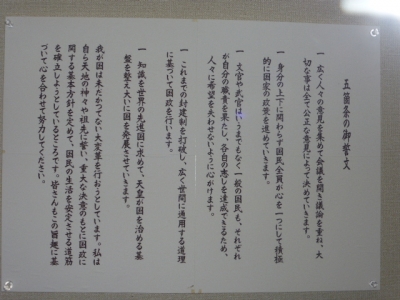 五箇条の御誓文
一 広く人々の意見を集めて会議を開き議論を重ね、大
切な事は全て公正な意見によって決めていきます。
一 身分の上下に関わらず国民全員が心を一つにして積極
的に国家の政策を進めていきます。
一 文官や武官はいうまでもなく一般の国民も、それぞれ
が自分の職責を果たし、各自の志しを達成できるため、
人々に希望を失わせないように心がけます。
一 これまでの封建制を打破し、広く世間に通用する道理
に基づいて国政を行います。
一 知識を世界の先進国に求めて、天皇が国を治める基
盤を整え大いに国を発展させていきます。
我が国は未だかつてない大変革を行おうとしています。私は
自ら天地の神々や祖先に誓い、重大な決意のもとに国政に
関する基本方針を定めて、国民の生活を安定させる道筋
を確立しようとしているところです。皆さんもこの旨趣に基
づいて心を合わせて努力してください。